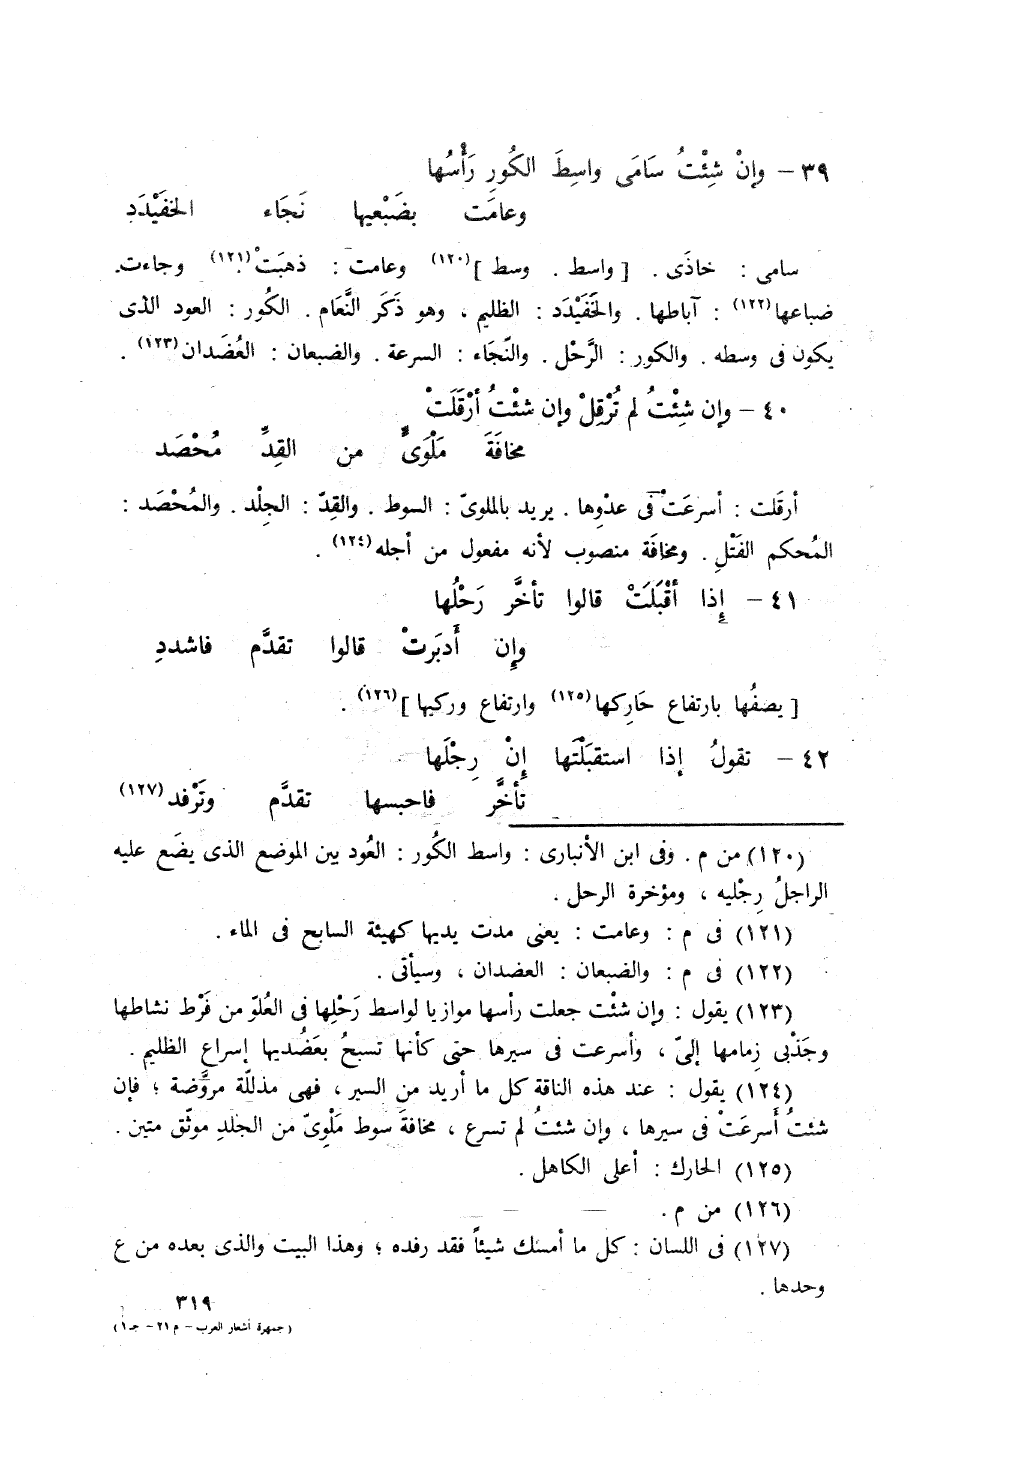 ٣٩ – وإنْ شِئْتُ سَامَى واسِطَ الكُورِ رَأْسُها
وعامَت بضَبْعيها نَجَاء الخَفَيْدَدِ
سامى : خاذَى . [ واسط . وسط ](١٢٠) وعامت : ذهبَتْ(١٢١) وجاءت.
ضباعها(١٢٢) : آباطها . والخَفَيْدَد : الظليم ، وهو ذَكَر النَّعَام . الكُور : العود الذى
يكون فى وسطه . والكور : الرَّحْل . والنَّجَاء : السرعة . والضبعان : العُضَدان(١٢٣) .
٤٠ – وإن شِئْتُ لم تُرْقِلْ وإن شئْتُ أرْقَلَتْ
مخافَةَ مَلْوَىٍّ من القِدِّ مُحْصَد
أرقَلت : أسرعَتْ فى عدْوِها . يريد بالملوىّ : السوط . والقِدّ : الجِلْد . والمُحْصَد :
المُحكم الفَتْلِ . ومخافَة منصوب لأنه مفعول من أجله(١٢٤) .
٤١ – إِذا أقْبَلَتْ قالوا تأخَّر رَحْلُها
وإِن أَدبَرتْ قالوا تقدَّم فاشددِ
[ يصفُها بارتفاع حَاركها(١٢٥) وارتفاع وركيها ](١٢٦) .
٤٢ – تقولُ إذا استقبَلْتَها إِنْ رِجْلَها
تأخَّر فاحبسها تقدَّم وتَرْفد(١٢٧)
(١٢٠) من م . وفى ابن الأنبارى : واسط الكُور : العُود بين الموضع الذى يضَع عليه
الراجلُ رِجْليه ، ومؤخرة الرحل .
(١٢١) فى م : وعامت : يعنى مدت يديها كهيئة السابح فى الماء .
(١٢٢) فى م : والضبعان : العضدان ، وسيأتى .
(١٢٣) يقول : وإن شئْت جعلت رأسها موازيا لواسط رَحْلِها فى العُلوّ من فَرْط نشاطها
وجَذْبى زِمامها إلىّ ، وأسرعت فى سيرها حتى كأنها تسبحُ بعَضُديها إسراع الظليم .
(١٢٤) يقول : عند هذه الناقة كل ما أريد من السير ، فهى مذللّة مروَّضة ؛ فإن
شئتُ أَسرعَتْ فى سيرها ، وإن شئتُ لم تسرع ، مخافةَ سوط مَلْوِىّ من الجلدِ موثّق متين .
(١٢٥) الحارك : أعلى الكاهل .
(١٢٦) من م .
(١٢٧) فى اللسان : كل ما أمسك شيئاً فقد رفده ؛ وهذا البيت والذى بعده من ع
وحدها .
٣١٩
( جمهرة أشعار العرب – م ٢١ – جـ ١ )